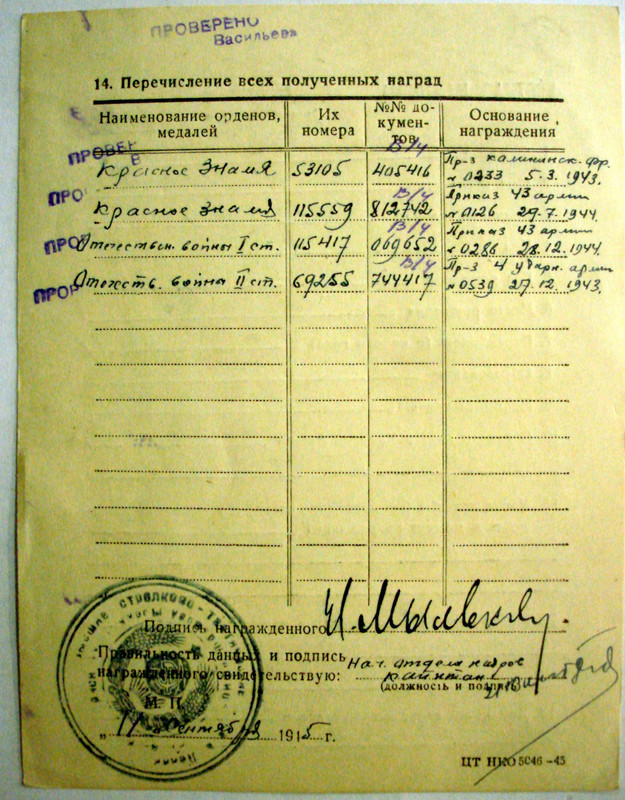 ПРОВЕРЕНО
Васильева
14. Перечисление всех полученных наград
Наименование орденов, медалей
Их номера
№№ документов
Основание награждения
ПРОВЕР
В
В/ч
Красное Знамя 53105 405416 Пр-з Калининск. фр.
№ 0233 5.3.1943.
ПРО
В/ч
Красное Знамя 115559 812742 Приказ 43 армии
№ 0126 29.7.1944.
ПРОВ
В/ч
Отечествен. войны I ст. 115417 069652 Приказ 43 армии
№ 0286 28.12.1944.
ПРОР
В/ч
Отечеств. войны II ст. 69255 744417 Пр-з 4 уд арм. армии
№ 0539 27.12.1943.
Подпись награжденного
Правильность данных и подпись Нач. отдела кадров
награжденного свидетельствую: капитан
(должность и подпись)
М. П.
„11" сентября 1945 г.
ЦТ НКО 5046—45